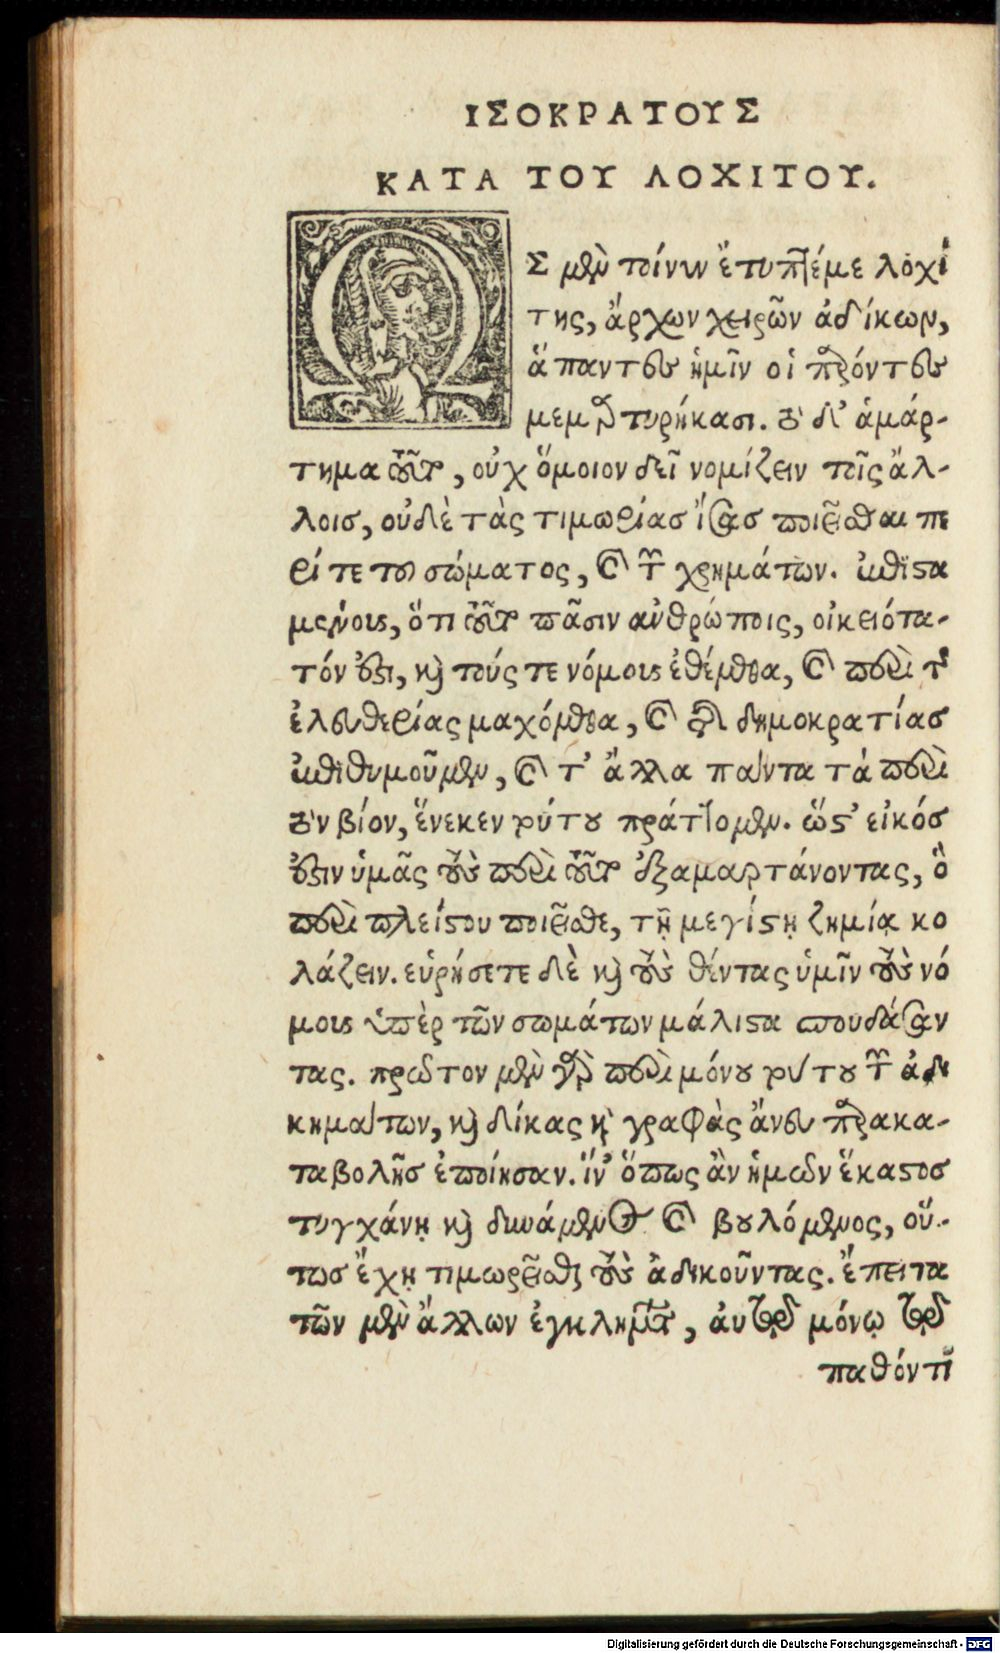 ΙΣΟΚΡΑΤΟΥΣ
ΚΑΤΑ ΤΟΥ ΛΟΧΙΤΟΥ.
ΩΣ μὲν τοίνυν ἔτυπτέ ἐμε λοχί
της, ἄρχων χειρῶν ἀδίκων,
ἅπαντες ἡμῖν οἱ παρόντες
μεμαρτυρήκασι. τὸ δ' ἁμάρ-
τημα τοῦτο, οὐχ ὅμοιον δεῖ νομίζειν τοῖς ἄλ-
λοισ, οὐδὲ τὰς τιμωρίασ ἴσασ ποιεῖσθαι πε
ρί τε τοῦ σώματος, καὶ τῶν χρημάτων. ἐπιϊστα
μένους, ὅτι τοῦτο πᾶσιν ἀνθρώποις, οἰκειότα-
τόν ἐστι, καὶ τούς τε νόμους ἐθέμεθα, καὶ περὶ τῆς
ἐλευθερίας μαχόμεθα, καὶ τῆς δημοκρατίασ
ἐπιθυμοῦμεν, καὶ τ' ἄλλα πάντα τὰ περὶ
τὸν βίον, ἕνεκεν τούτου πράττομεν. ὥστ' εἰκόσ
ἐστιν ὑμᾶς τοὺς περὶ τοῦτο ἐξαμαρτάνοντας, ὃ
περὶ πλείστου ποιεῖσθε, τῇ μεγίστῃ ζημίᾳ κο
λάζειν. εὑρήσετε δὲ καὶ τοὺς θέντας ὑμῖν τοὺς νό
μους ὑπὲρ τῶν σωμάτων μάλιστα σπουδάσαν
τας. πρῶτον μὲν γὰρ περὶ μόνου τούτου τῶν ἀδι
κημάτων, καὶ δίκας καὶ γραφὰς ἄνευ παρακα-
ταβολῆσ ἐποίησαν. ἵν' ὅπως ἂν ἡμῶν ἕκαστοσ
τυγχάνῃ καὶ δυνάμενος καὶ βουλόμενος, οὕ-
τωσ ἔχῃ τιμωρεῖσθαι τοὺς ἀδικοῦντας. ἔπειτα
τῶν μὲν ἄλλων ἐγκλημάτων, αὐτῷ μόνῳ τῷ
παθόντι
Digitalisierung gefördert durch die Deutsche Forschungsgemeinschaft - DFG